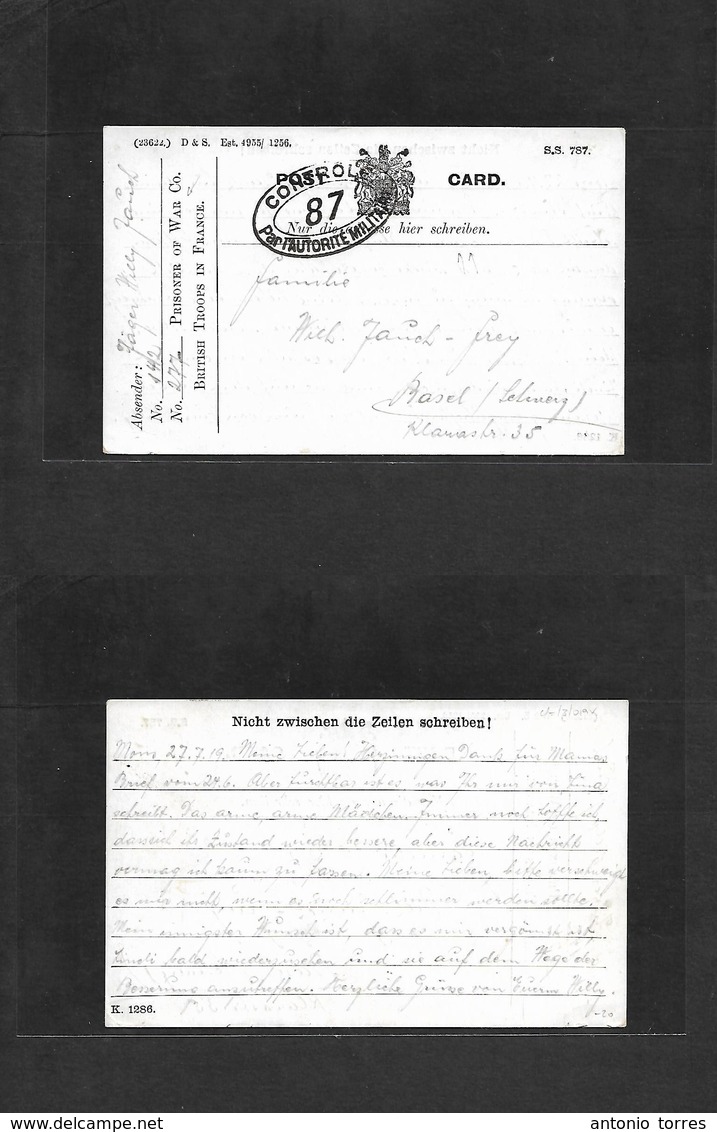 (23622.) D & S. Est. 4955/ 1256.
S.S. 787.
POST CARD.
CONTROLE
87
Par l'AUTORITE MILITAIRE
Nur die Adresse hier schreiben.
Absender: Jäger Willy Jauch
No. 142
No. 277 PRISONER OF WAR CO.
BRITISH TROOPS IN FRANCE.
11
Familie
Wilh. Jauch-Frey
Basel (Schweiz)
Klarastr. 35
Nicht zwischen die Zeilen schreiben!
27.7.19. Meine Lieben! Herzinnigen Dank für Mamas
Brief vom 24.6. Aber furchtbar ist es, was Ihr mir von
schreibt. Das arme, arme Mädchen. Immer noch hoffe ich,
dass sich ihr Zustand wieder bessere, aber diese Nachricht
vermag ich kaum zu fassen. Meine Lieben, bitte verschweigt
es mir nicht, wenn es noch schlimmer werden sollte.
Mein innigster Wunsch ist, dass es mir vergönnt ist,
bald wiederzusehen und sie auf dem Wege der
Besserung anzutreffen. Herzliche Grüsse von Euerm Willy.
K. 1286.
-20
antonio torres